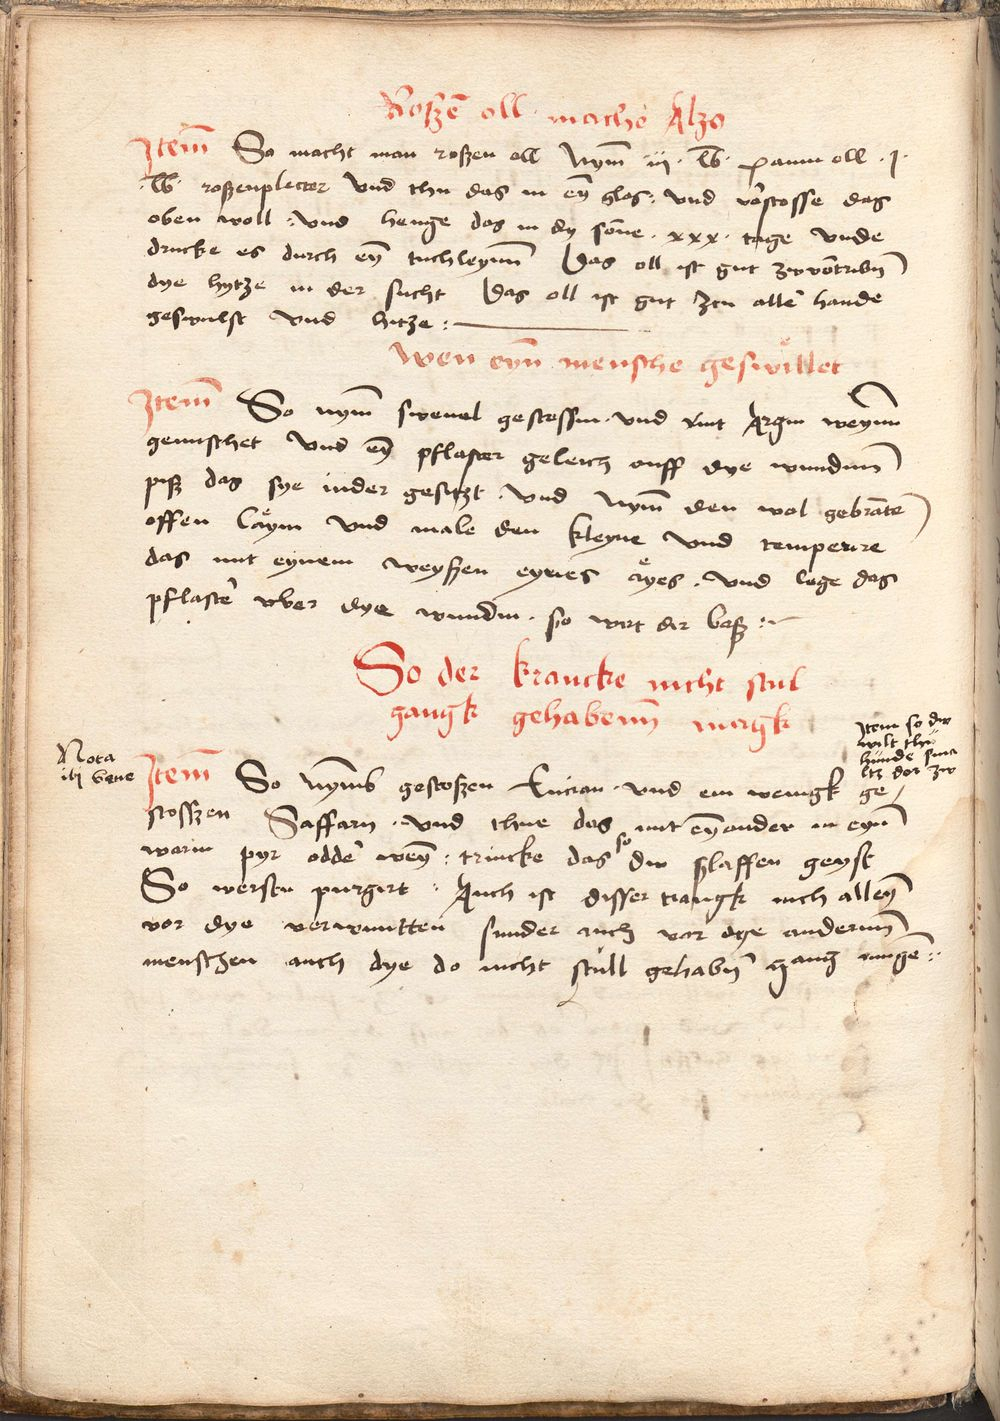 Roszē oll mache Alzo
Item̄ So macht man roszen oll Nym̄ iij · lb · pаumoll · j ·
· lb · roszenpletter Vnd thu das in eȳ glas : vnd vorstosse das
oben woll : vnd henge das in dy sōne · xxx · tage Vnde
drucke es durch eȳ tuchleynn̄ Das oll ist gut zwvortribn̄
dye hytze in der sucht Das oll ist gut zcu alle hande
geswulst vnd hitze :
Wen eyn̄ mensche geswillet
Itemn̄ So nym̄ swevel gestossin vnd mit Argin weynn
gemischet Vnd eȳ pflaster geleich auff dye wundinn̄
pisz das sye nider gesitzt · vnd Nym̄ den wol gebratē
offen laym vnd male den kleyne vnd temperire
das mit eynem weyszen eynes ayes · vnd lege das
pflaster vber dye wundin · so wirt dir basz :
So der krancke nicht stul
gangk gehabenn̄ magk
Item so dw
wilt thu
hunde sma
ltz dor zw
Nota
bene
Itemn̄ So Nymb gestoszen Encian · vnd ein wenigk ge
stosszen Saffarn · vnd thue das mit eȳander in eyn̄
warm pyr odder weȳ : trincke das so dw slaffen geyst
So werstu purgirt : Auch ist disser trangk nich alleȳ
vor dye verwuntten sunder auch vor dye anderinn̄
menschen auch dye do nicht stull gehabn̄ gang mugē :